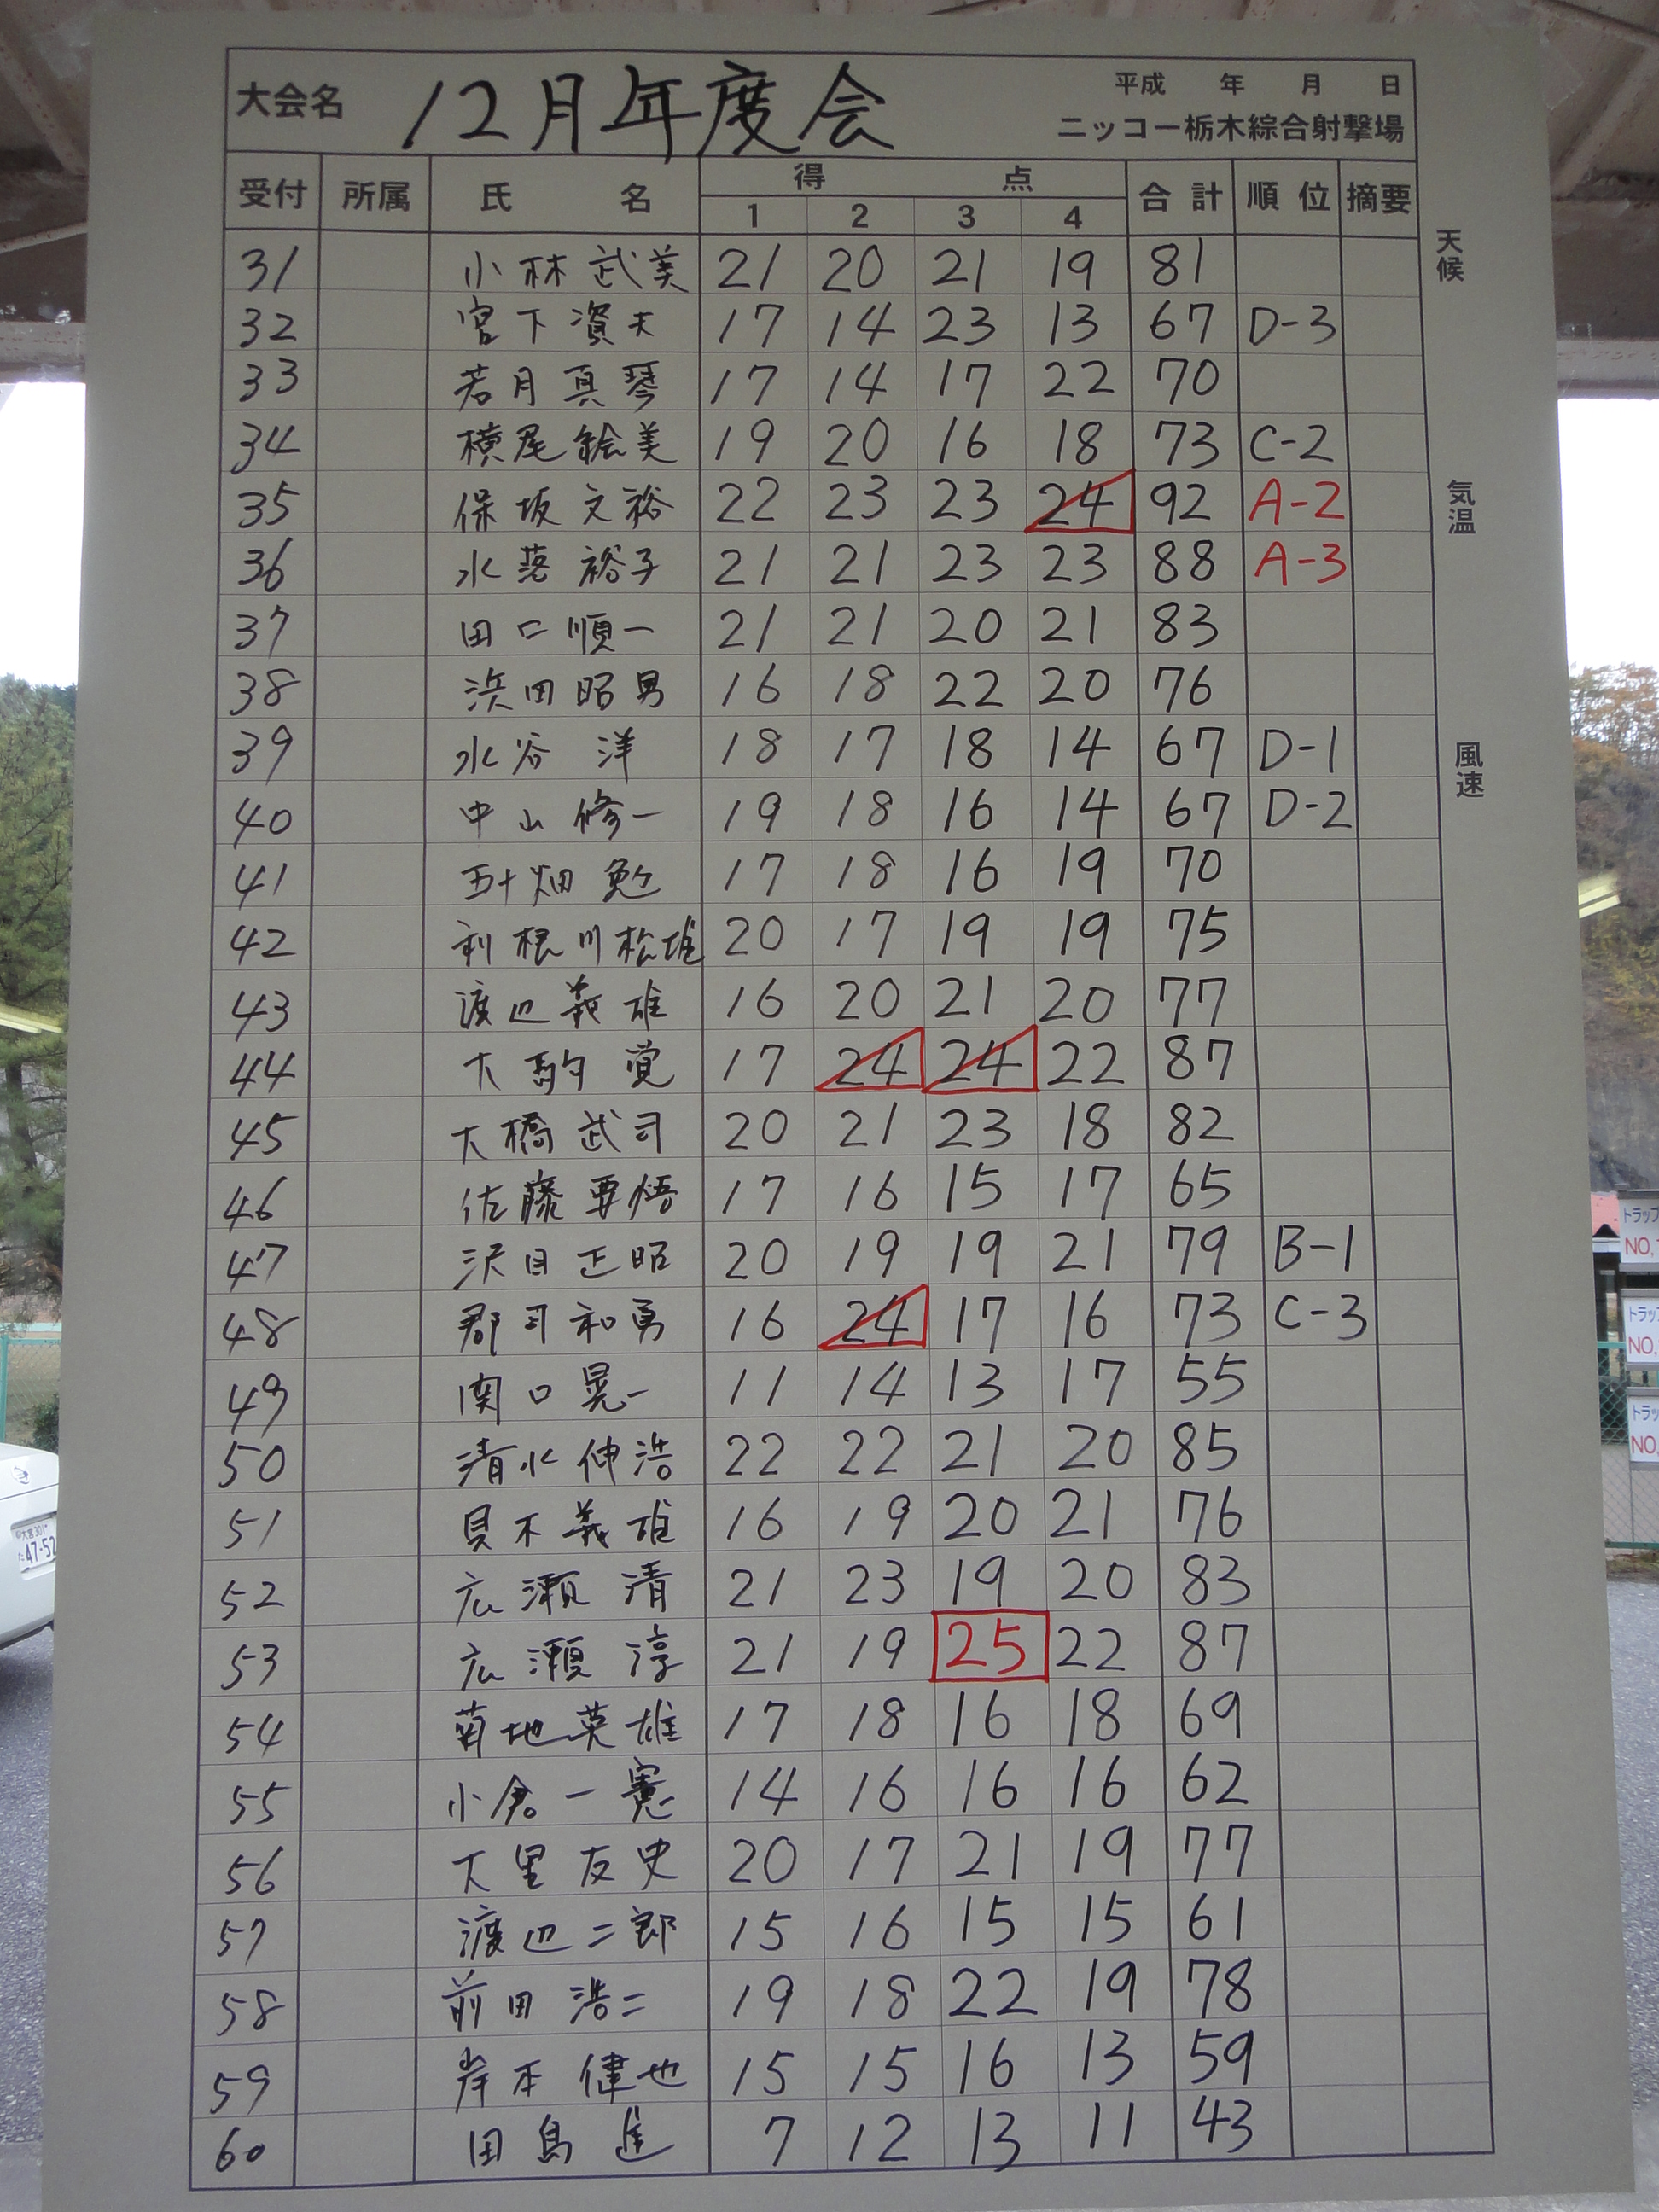 大会名 12月年度会 平成 年 月 日
ニッコー栃木綜合射撃場
受付 所属 氏名 得点 合計 順位 摘要
1 2 3 4
天候
気温
風速
31 小林武美 21 20 21 19 81
32 宮下資夫 17 14 23 13 67 D-3
33 若月真琴 17 14 17 22 70
34 横尾絵美 19 20 16 18 73 C-2
35 保坂文裕 22 23 23 24 92 A-2
36 水落裕子 21 21 23 23 88 A-3
37 田口順一 21 21 20 21 83
38 浜田昭男 16 18 22 20 76
39 水谷洋 18 17 18 14 67 D-1
40 中山修一 19 18 16 14 67 D-2
41 五十畑勉 17 18 16 19 70
42 利根川松雄 20 17 19 19 75
43 渡辺義雄 16 20 21 20 77
44 大駒覚 17 24 24 22 87
45 大橋武司 20 21 23 18 82
46 佐藤要悟 17 16 15 17 65
47 沢目正昭 20 19 19 21 79 B-1
48 郡司和勇 16 24 17 16 73 C-3
49 関口晃一 11 14 13 17 55
50 清水伸浩 22 22 21 20 85
51 貝木義雄 16 19 20 21 76
52 広瀬清 21 23 19 20 83
53 広瀬淳 21 19 25 22 87
54 菊地英雄 17 18 16 18 69
55 小倉一憲 14 16 16 16 62
56 大里友史 20 17 21 19 77
57 渡辺二郎 15 16 15 15 61
58 前田浩二 19 18 22 19 78
59 岸本健也 15 15 16 13 59
60 田島進 7 12 13 11 43
トラップ
NO.
トラップ
NO.
トラップ
NO.
大宮 301
47-52